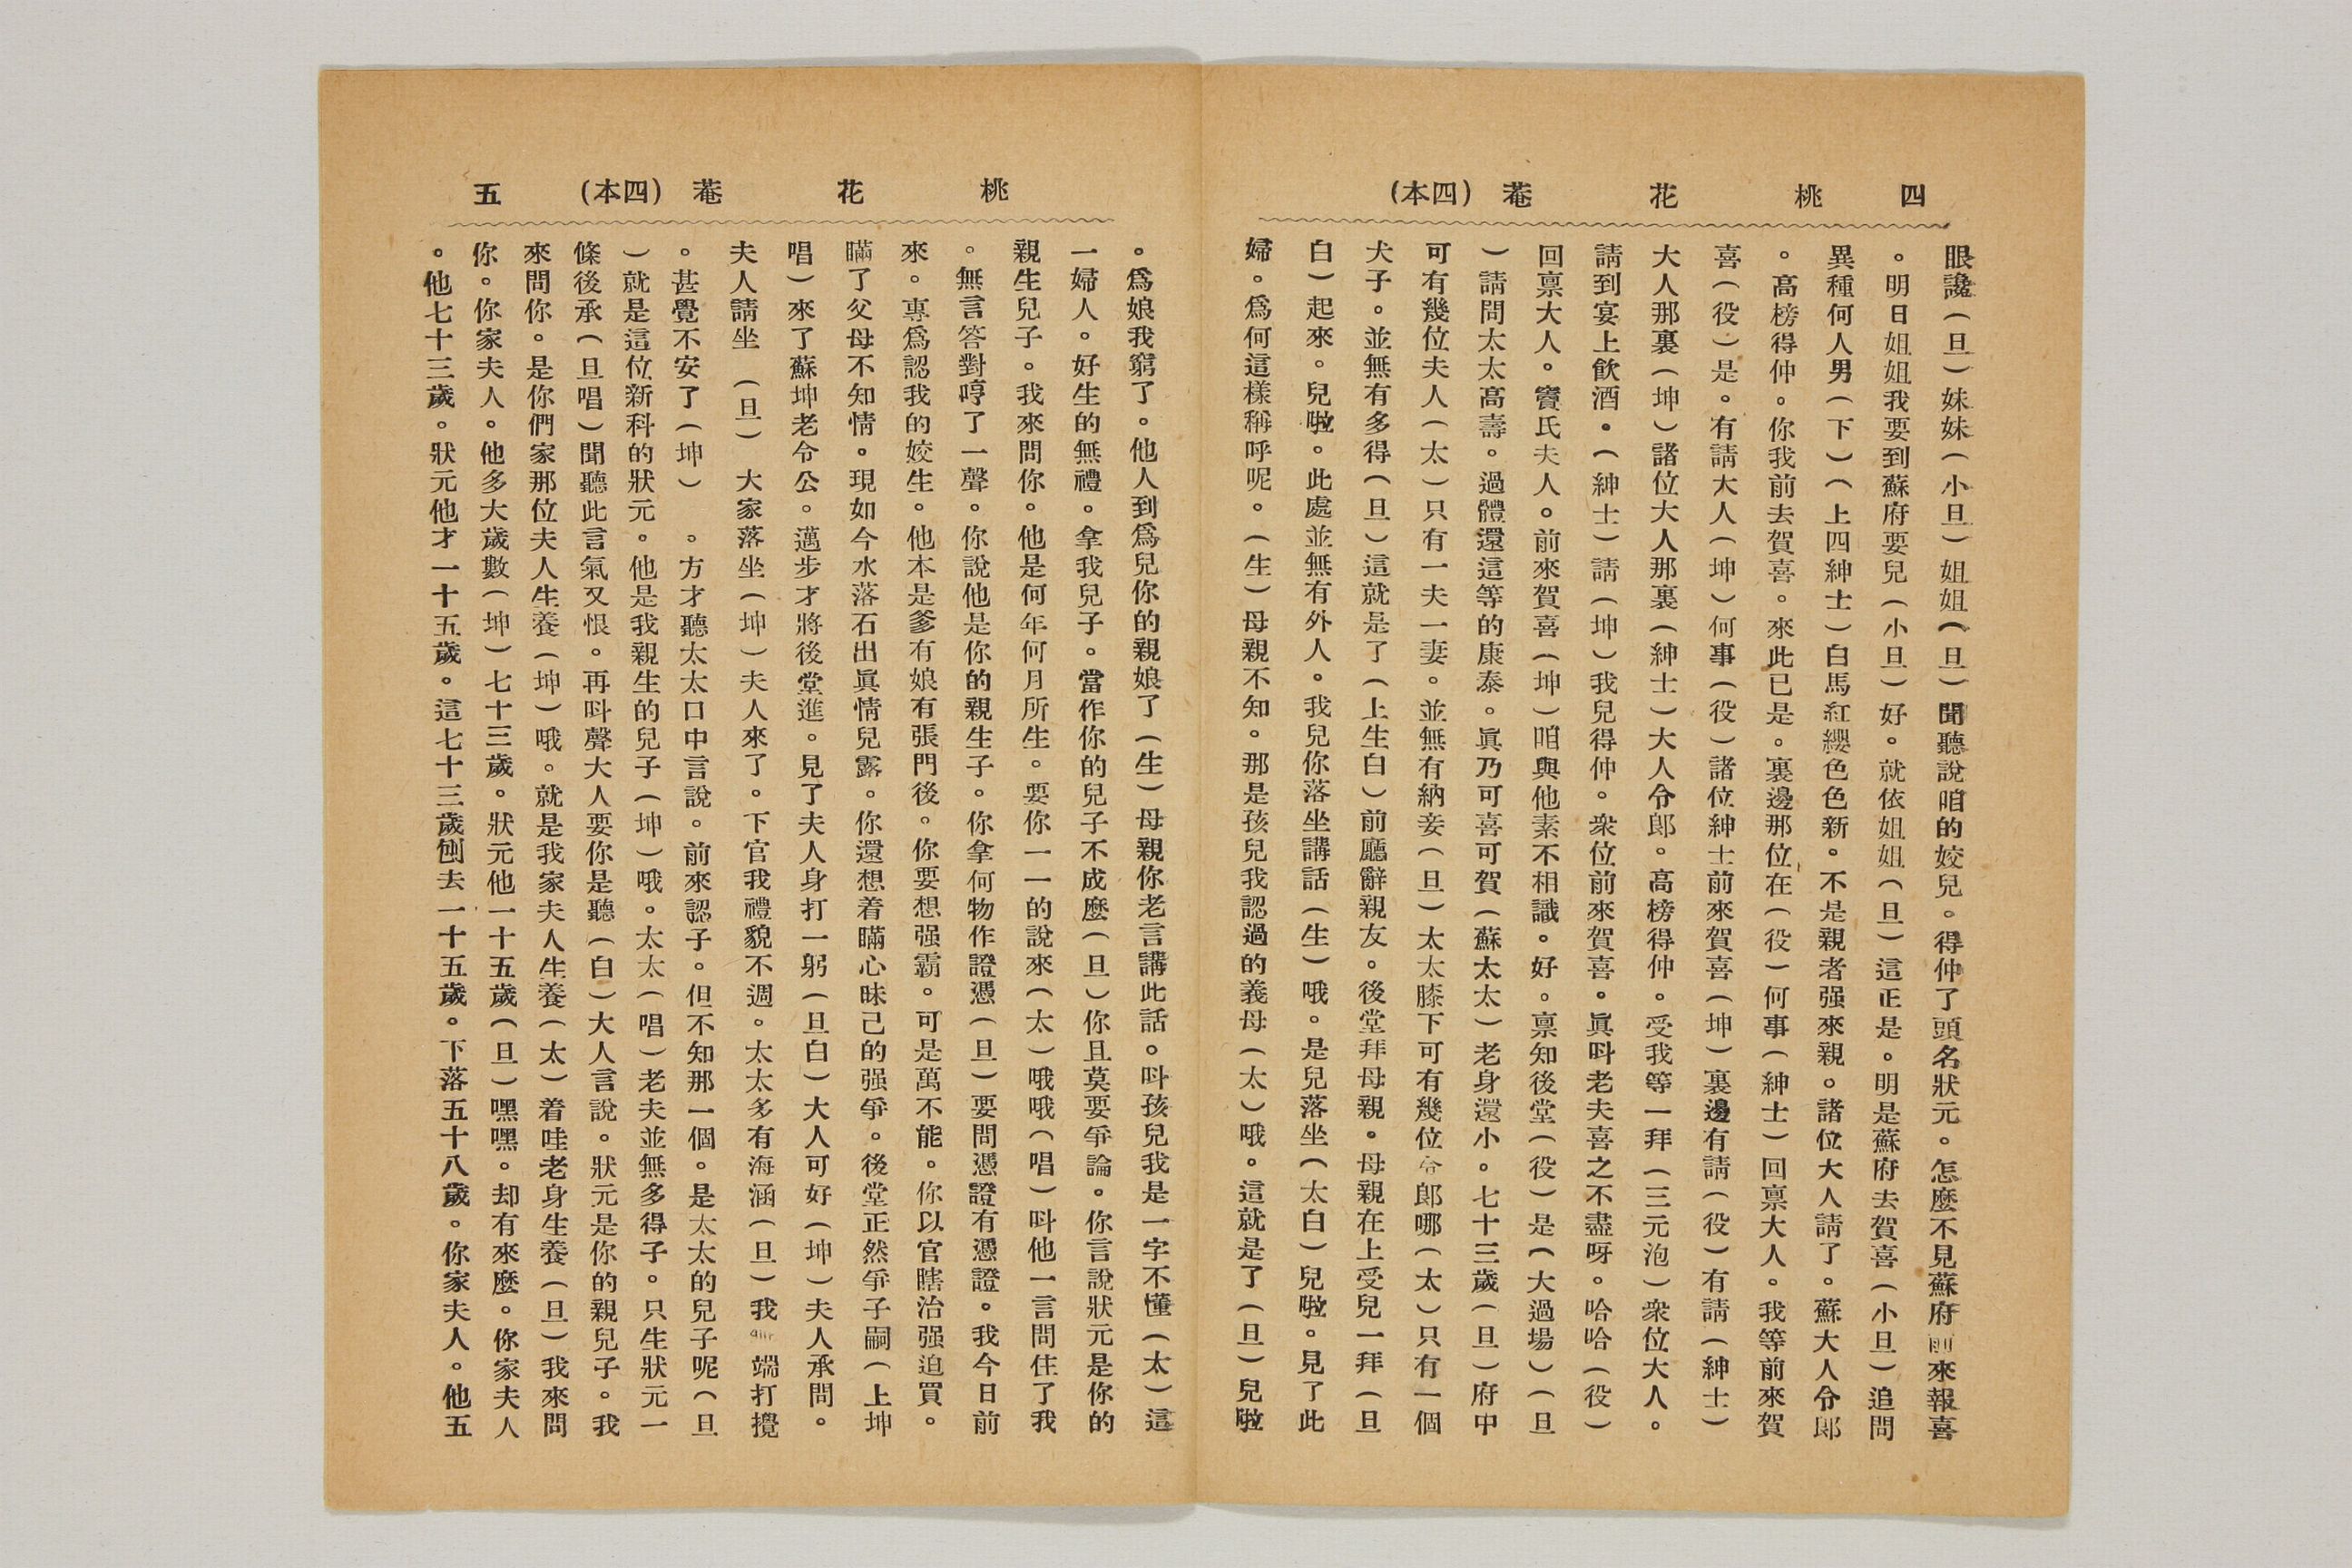 四　桃　花　菴　(四本)
眼讒(旦)妹妹(小旦)姐姐(旦)聞聽說咱的姣兒。得仲了頭名狀元。怎麼不見蘇府前來報喜
。明日姐姐我要到蘇府要兒(小旦)好。就依姐姐(旦)這正是。明是蘇府去賀喜(小旦)追問
異種何人男(下)(上四紳士)白馬紅纓色色新。不是親者强來親。諸位大人請了。蘇大人令郞
。高榜得仲。你我前去賀喜。來此已是。裏邊那位在(役)何事(紳士)回禀大人。我等前來賀
喜(役)是。有請大人(坤)何事(役)諸位紳士前來賀喜(坤)裏邊有請(役)有請(紳士)
大人那裏(坤)諸位大人那裏(紳士)大人令郎。高榜得仲。受我等一拜(三元泡)衆位大人。
請到宴上飮酒。(紳士)請(坤)我兒得仲。衆位前來賀喜。眞呌老夫喜之不盡呀。哈哈(役)
回禀大人。竇氏夫人。前來賀喜(坤)咱與他素不相識。好。禀知後堂(役)是(大過場)(旦
)請問太太高壽。過體還這等的康泰。眞乃可喜可賀(蘇太太)老身還小。七十三歲(旦)府中
可有幾位夫人(太)只有一夫一妻。並無有納妾(旦)太太膝下可有幾位令郎哪(太)只有一個
犬子。並無有多得(旦)這就是了(上生白)前廳辭親友。後堂拜母親。母親在上受兒一拜(旦
白)起來。兒啦。此處並無有外人。我兒你落坐講話(生)哦。是兒落坐(太白)兒啦。見了此
婦。爲何這樣稱呼呢。(生)母親不知。那是孩兒我認過的義母(太)哦。這就是了(旦)兒啦
桃　花　菴　(四本)　五
。爲娘我窮了。他人到爲兒你的親娘了(生)母親你老言講此話。呌孩兒我是一字不懂(太)這
一婦人。好生的無禮。拿我兒子。當作你的兒子不成麼(旦)你且莫要爭論。你言說狀元是你的
親生兒子。我來問你。他是何年何月所生。要你一一的說來(太)哦哦(唱)呌他一言問住了我
。無言答對哼了一聲。你說他是你的親生子。你拿何物作證憑(旦)要問憑證有憑證。我今日前
來。專爲認我的姣生。他本是爹有娘有張門後。你要想强霸。可是萬不能。你以官瞎治强迫買。
瞞了父母不知情。現如今水落石出眞情兒露。你還想着瞞心昧己的强爭。後堂正然爭子嗣(上坤
唱)來了蘇坤老令公。邁步才將後堂進。見了夫人身打一躬(旦白)大人可好(坤)夫人承問。
夫人請坐　(旦)　大家落坐(坤)夫人來了。下官我禮貌不週。太太多有海涵(旦)我端打攪
。甚覺不安了(坤)　。方才聽太太口中言說。前來認子。但不知那一個。是太太的兒子呢(旦
)就是這位新科的狀元。他是我親生的兒子(坤)哦。太太(唱)老夫並無多得子。只生狀元一
條後承(旦唱)聞聽此言氣又恨。再呌聲大人要你是聽(白)大人言說。狀元是你的親兒子。我
來問你。是你們家那位夫人生養(坤)哦。就是我家夫人生養(太)着哇老身生養(旦)我來問
你。你家夫人。他多大歲數(坤)七十三歲。狀元他一十五歲(旦)嘿嘿。却有來麼。你家夫人
。他七十三歲。狀元他才一十五歲。這七十三歲刨去一十五歲。下落五十八歲。你家夫人。他五